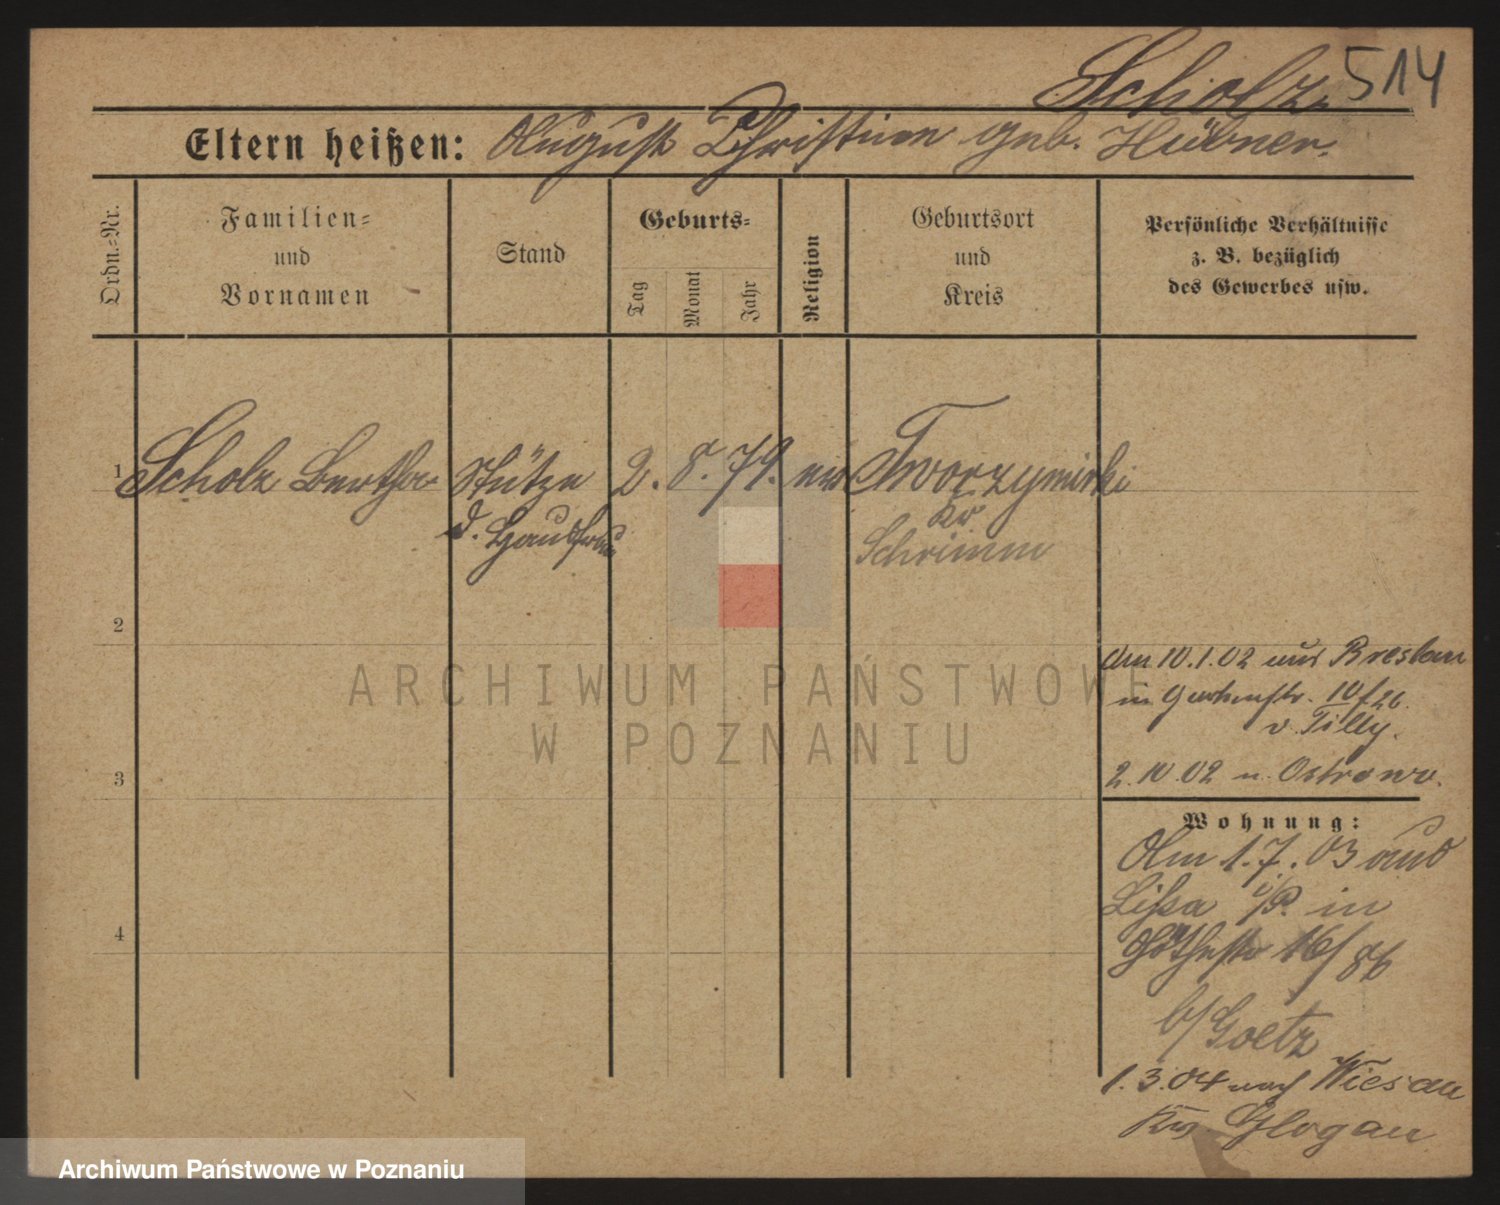 Scholz. 514
Eltern heißen: August Christine geb. Hübner.
Ordn.=Nr.
Familien=
und
Vornamen
Stand
Geburts=
Tag
Monat
Jahr
Religion
Geburtsort
und
Kreis
Persönliche Verhältnisse
z. B. bezüglich
des Gewerbes usw.
1 Scholz Bertha Stütze 2. 8. 79. ev Tworzymirki
d. Hausfrau Kr
Schrimm
2
Am 10.1.02 aus Breslau
in Gartenstr. 10
v. Tilly.
3 2.10.02 n. Ostrowo.
Wohnung:
Am 1.7.03 aus
Lissa i/P. in
Göthestr 16/
4
b/ Goetz
1.3.04 nach Wiesau
Kr Glogau
ARCHIWUM PAŃSTWOWE
W POZNANIU
Archiwum Państwowe w Poznaniu